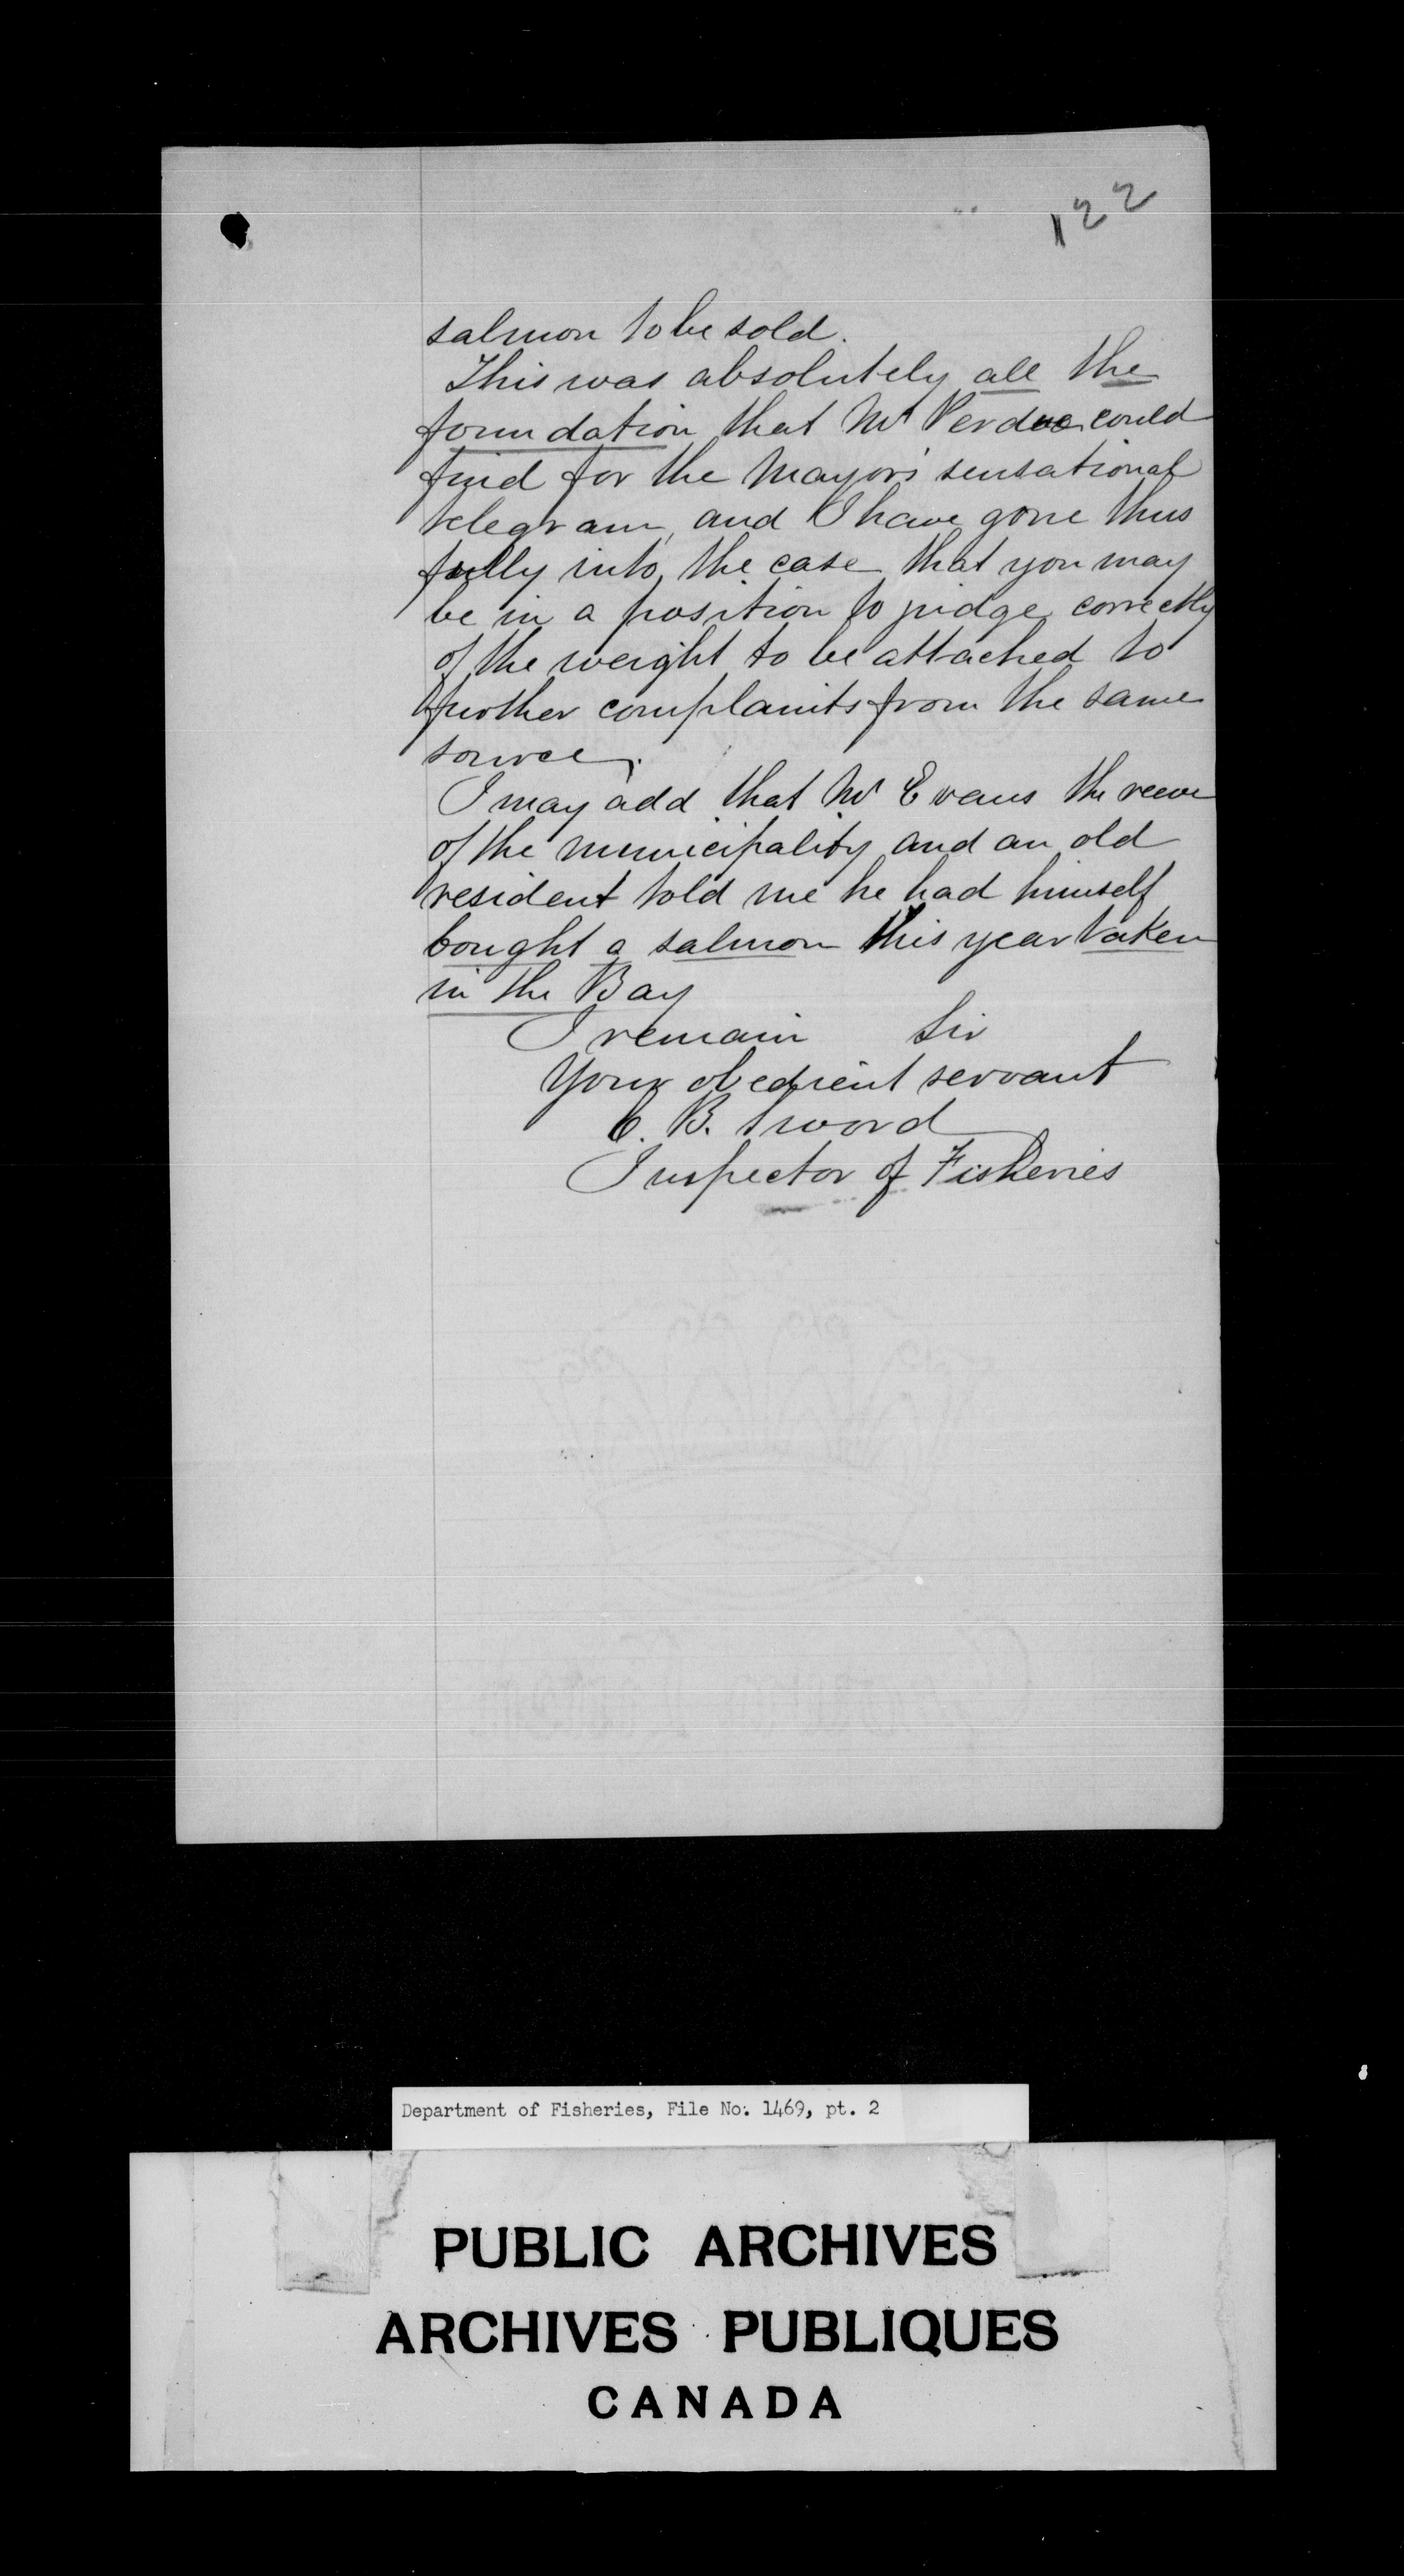 122
salmon to be sold.
This was absolutely all the
foundation that Mr Perdue could
find for the Mayor's sensational
telegram, and I have gone thus
fully into the case that you may
be in a position to judge correctly
of the weight to be attached to
further complaints from the same
source.
I may add that Mr Evans the reeve
of the municipality and an old
resident told me he had himself
bought a salmon this year taken
in the Bay
I remain Sir
Your obedient servant
C. B. Sword
Inspector of Fisheries
Department of Fisheries, File No. 1469, pt. 2
PUBLIC ARCHIVES
ARCHIVES PUBLIQUES
CANADA